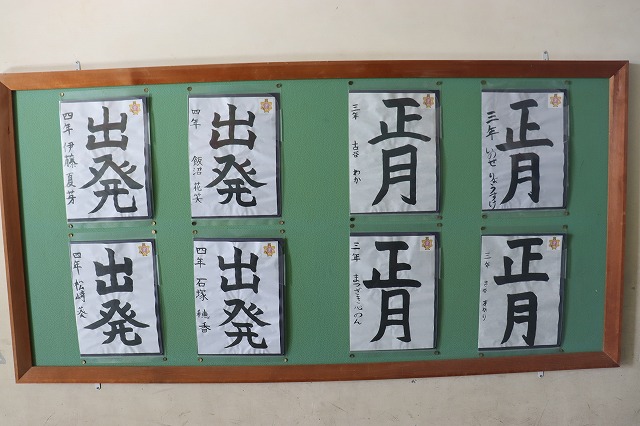 出発
四年 伊藤 夏芽
出発
四年 飯沼 花笑
正月
三年 古谷 わか
正月
三年 いのせ りょうすけ
出発
四年 松崎 葵
出発
四年 石塚 穂香
正月
三年 まつざき 心のん
正月
三年